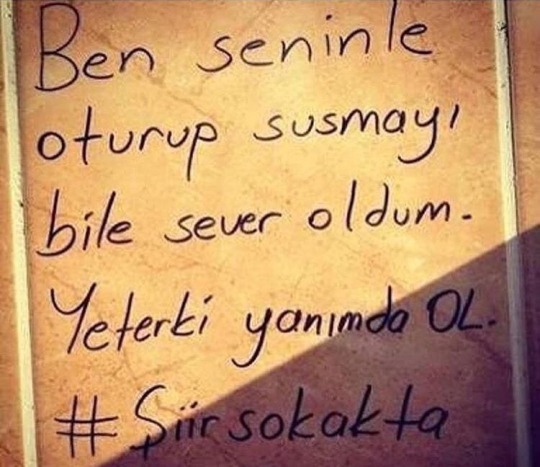 Ben seninle
oturup susmayı
bile sever oldum.
Yeterki yanımda OL.
#Şiirsokakta